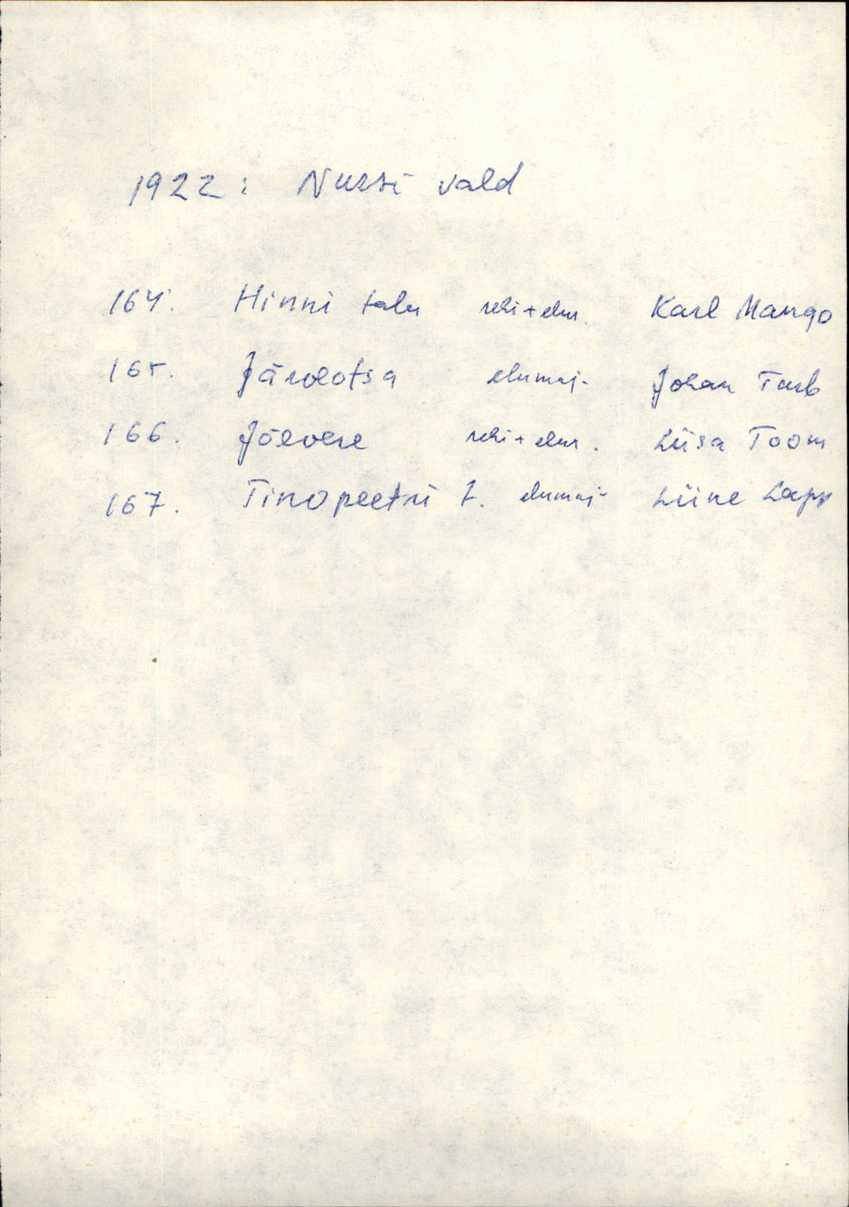 1922: Nursi vald
164. Hinni talu rehi+elur. Karl Mango
165. Järveotsa elumaj- Johan Tarb
166. Jõevere rehi+elur. Liisa Toom
167. Tinopeetri t. elumaj- Liine Lapp